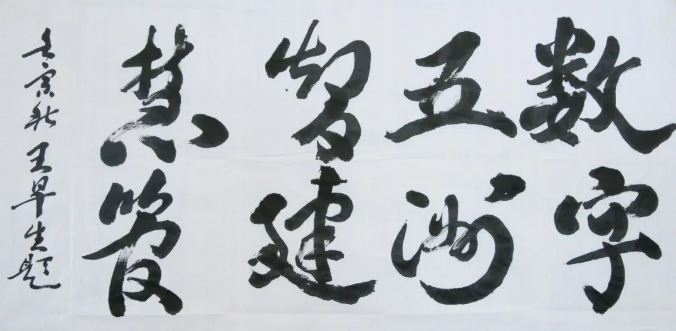 数字
五洲
智建
慧管
壬寅秋王早生题